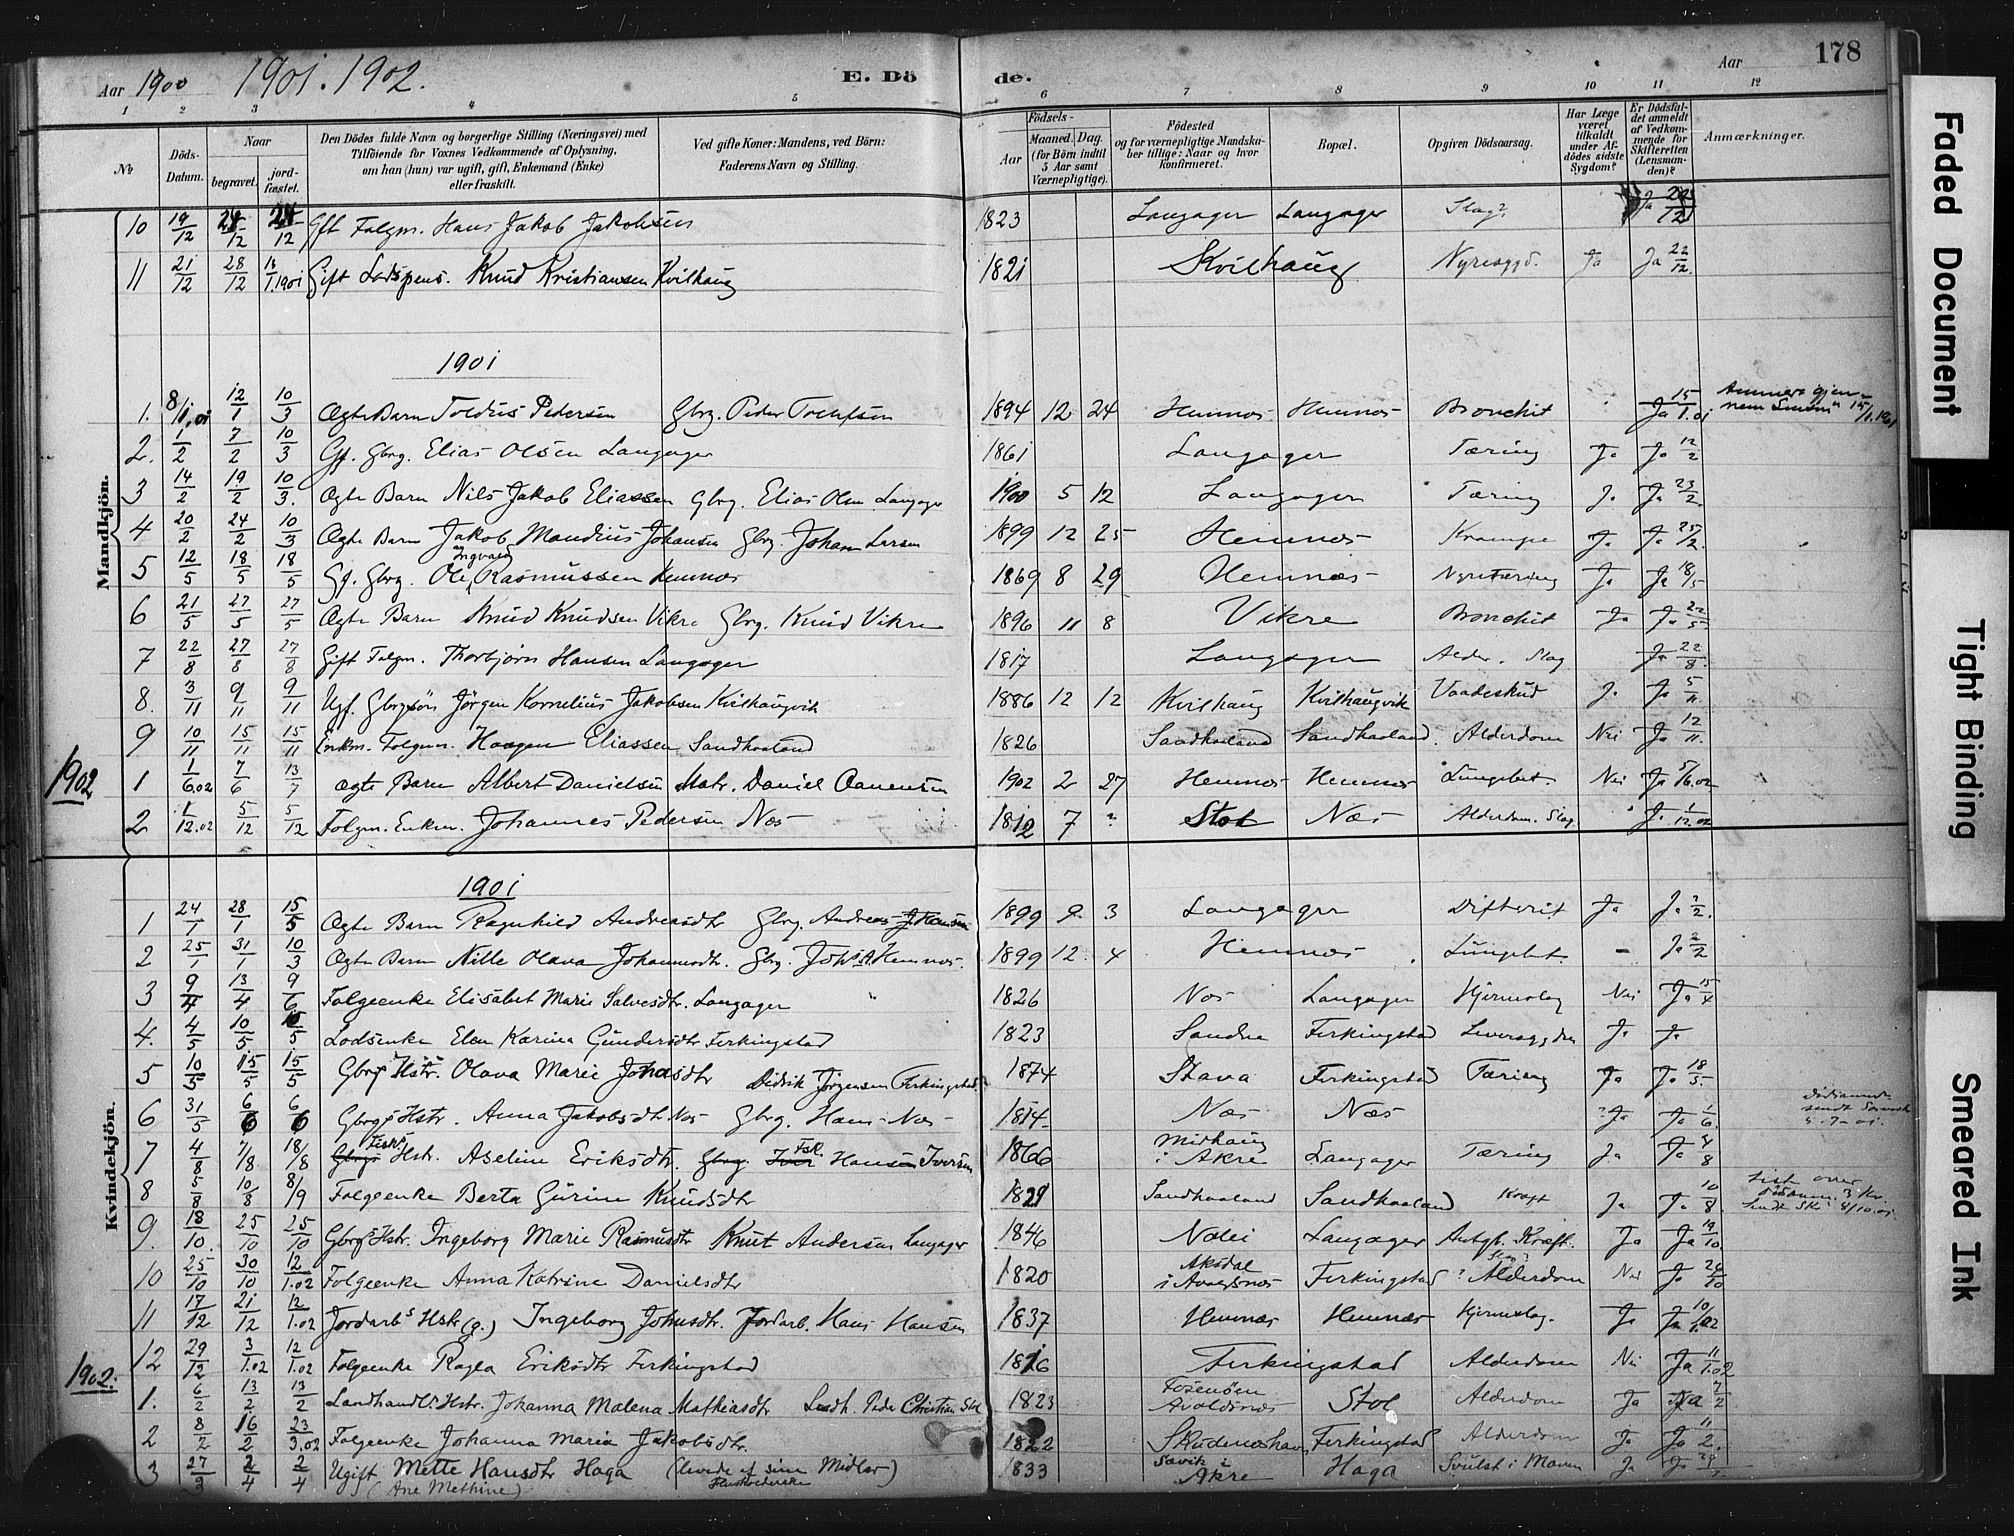 Aar 1900 1901. 1902. E. Dö de. Aar 178
1 2 3 4 5 6 7 8 9 10 11 12
Nr.
Döds-Datum.
Naar
begravet.
jord-fæstet.
Den Dödes fulde Navn og borgerlige Stilling (Næringsvei) med
Tilföiende for Voxnes Vedkommende af Oplysning,
om han (hun) var ugift, gift, Enkemand (Enke)
eller fraskilt.
Ved gifte Koner: Mandens, ved Börn:
Faderens Navn og Stilling.
Födsels-
Aar
Maaned. Dag.
(for Börn indtil
5 Aar samt
Værnepligtige).
Födested
og for værnepligtige Mandska-
ber tillige: Naar og hvor
konfirmeret.
Bopæl.
Opgiven Dödsaarsag.
Har Læge
været
tilkaldt
under Af-
dödes sidste
Sygdom?
Er Dödsfal-
det anmeldt
af Vedkom-
mende for
Skifteretten
(Lensman-
den)?
Anmærkninger.
Mandkjön.
10 19/12 24/12 24/12 Gft Folgm. Hans Jakob Jakobsen 1823 Langager Langager Slag? Ja
11 21/12 28/12 13/1.1901 Gift Lodspens. Knud Kristiansen Kvilhaug 1821 Kvilhaug Nyresygd. Ja Ja 22/12.
1901
1. 8/1.01 12/1 10/3 Ægte Barn Toldius Pedersen Gbrg. Peder 1894 12 24 Hemnes Hemnes Bronchit Ja 15/1.01
2. 1/2 7/2 10/3 Gf. Gbrg. Elias Olsen Langager 1861 Langager Tæring Ja Ja 12/2
3 14/2 19/2 10/3. Ægte Barn Nils Jakob Eliassen Gbrg. Elias Olsen Langager 1900 5 12 Langager Tæring Ja Ja 23/2
4 20/2 24/2 10/3 Ægte Barn Jakob Mandius Johansen Gbrg. Johan Larsen 1899 12 25 Hemnes Krampe Ja Ja 25/2.
5 12/5 18/5 18/5 Gf. Gbrg. Ole Ingvald Rasmussen Hemnæs 1869 8 29 Hemnæs Nyretæring Ja Ja 18/5
6 21/5 27/5 27/5 Ægte Barn Knud Knudsen Vikre Gbrg. Knud Vikre 1896 11 8 Vikre Bronchit Ja Ja 22/5
7 22/8 27/8 27/8 Gift Folgm. Thorbjørn Hansen Langager 1817 Langager Alder. Slag Ja 22/8.
8. 3/11 9/11 9/11 Ugf. Gbrgsön Jörgen Kornelius Jakobsen Kvilhaugvik 1886 12 12 Kvilhaug Kvilhaugvik Vaadeskud Ja Ja 5/11.
9 10/11 15/11 15/11 Enkm. Folgm. Haagen Eliassen Sandhaaland 1826 Sandhaaland Sandhaaland. Alderdom Nei Ja 12/11.
1902
1 1/6.02 7/6 13/7 Ægte Barn Albert Danielsen Matr. Daniel Aanensen 1902 2 27 Hemnes Hemnes Lungebet. Nei Ja 5/6.02
2 1/12.02 5/12 5/12 Folgm. Enkm. Johannes Pedersen Næs 1812 7 ? Stol Næs Alderdom. Slag. Ja 1/12.02
Kvindekjön.
1901
1 24/1 28/1 15/5 Ægte Barn Ragnhild Andreasdtr Gbrg. Andreas J. Hansen 1899 9 3 Langager Difterit Ja Ja ?/2.
2 25/1 31/1 10/3 Ægte Barn Nille Olava Johannesdtr. Gbrg. Johs. A. Hemnes. 1899 12. 4 Hemnes Lungebet. - Ja 2/2
3 9/4 13/4 9/6 Folgeenke Elisabet Marie Salvesdtr. Langager 1826 Nes Langager Hjerneslag Nei Ja 15/4
4. 4/5 10/5 10/5 Lodsenke Elen Karina Gundersdtr Ferkingstad 1823 Sandve Ferkingstad Leversygdom Ja Ja
5 10/5 15/5 15/5 Gbrgs Hstr. Olava Marie Johnsdtr Didrik Jörgensen Ferkingstad 1874 Stava Ferkingstad Tæring Ja Ja 18/5.
6 31/5 6/6 6/6 Gbrgs Hstr. Anna Jakobsdtr Næs Gbrg. Hans Næs 1814. Næs Næs ? Ja Ja 1/6.
7 4/8 7/8 18/8 Gbrgs Fiskr Hstr. Aseline Eriksdtr. Gbrg. Iver Fsk. Hansen Iversen 1866 Midhaug i Akre Langager Tæring Ja Ja 4/8
8 5/8 10/8 8/9 Folgeenke Berta Gurine Knudsdtr 1821 Sandhaaland Sandhaaland Kræft Ja Ja 10/8.
9. 18/10. 25/10 25/10 Gbrgs Hstr. Ingeborg Marie Rasmusdtr Knut Andersen Langager 1846 Nolei Langager Antgl. Kræft. Ja Ja 19/10
10 25/10 30/10 12/1.02 Folgeenke Anna Katrine Danielsdtr 1820 Aksdal i Avaldsnes Ferkingstad ? Alderdom Nei Ja 26/10
11 17/12 21/12 12/1.02 Jordarbs Hstr (g.) Ingeborg Johnsdtr. Jordarb. Hans Hansen 1837 Hemnæs Hemnæs Hjerneslag. Ja Ja 10/1.02
12 29/12 3/1.02 12/1.02 Folgeenke Ragla Eriksdtr Ferkingstad 1816 Ferkingstad Alderdom Nei Ja 11/1.02
1902.
1. 6/2 13/2 13/2 Landhandl.s Hstr. Johanna Malena Mathiasdtr Landh. Peder Christian Stol 1823 Fosenöen Avaldsnes Stol Alderdom Ja Ja 7/2
2 8/2 16/2 23/3.02 Folgeenke Johanna Maria Jakobsdtr. 1822 Skudeneshavn Ferkingstad Alderdom Ja Ja 11/2.
3 27/3 2/4 2/4 Ugift Mette Hansdtr Haga (levede af sine Midler) 1833 Sævik i Akre Haga Svulst i Maven Ja Ja
(Ane Methine)
Faded Document
Tight Binding
Smeared Ink